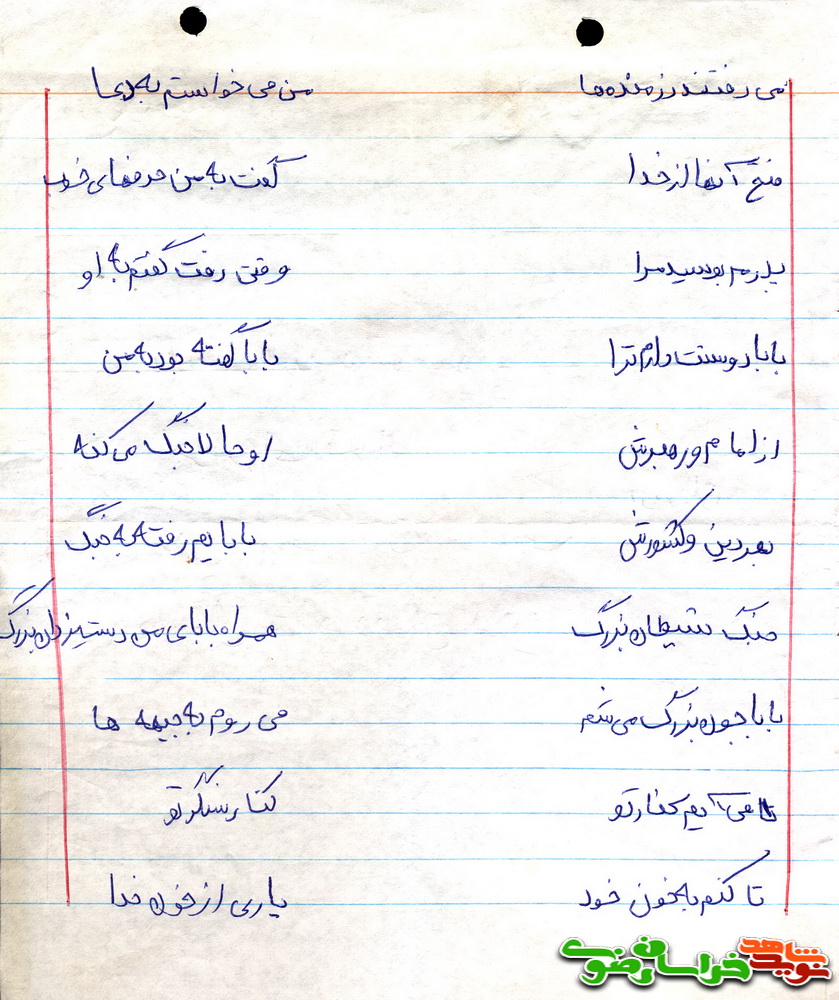 می رفتند رزمنده ها من می خواستم به دعا
فتح آنها از خدا گفت به من حرفهای خوب
پدرم بوسید مرا وقتی رفت گفتم به او
بابا دوستت دارم ترا بابا گفته بود به من
از امام و رهبرش او حالا جنگ می کنه
بهر دین و کشورش بابایم رفته به جنگ
جنگ شیطان بزرگ همراه بابای من دست یزدان بزرگ
بابا جون بزرگ می شم می روم به جبهه ها
تا می آیم کنار تو کنار سنگر تو
تا کنم به خون خود یاری از خون خدا
شاهد
نوید
خراسان رضوی